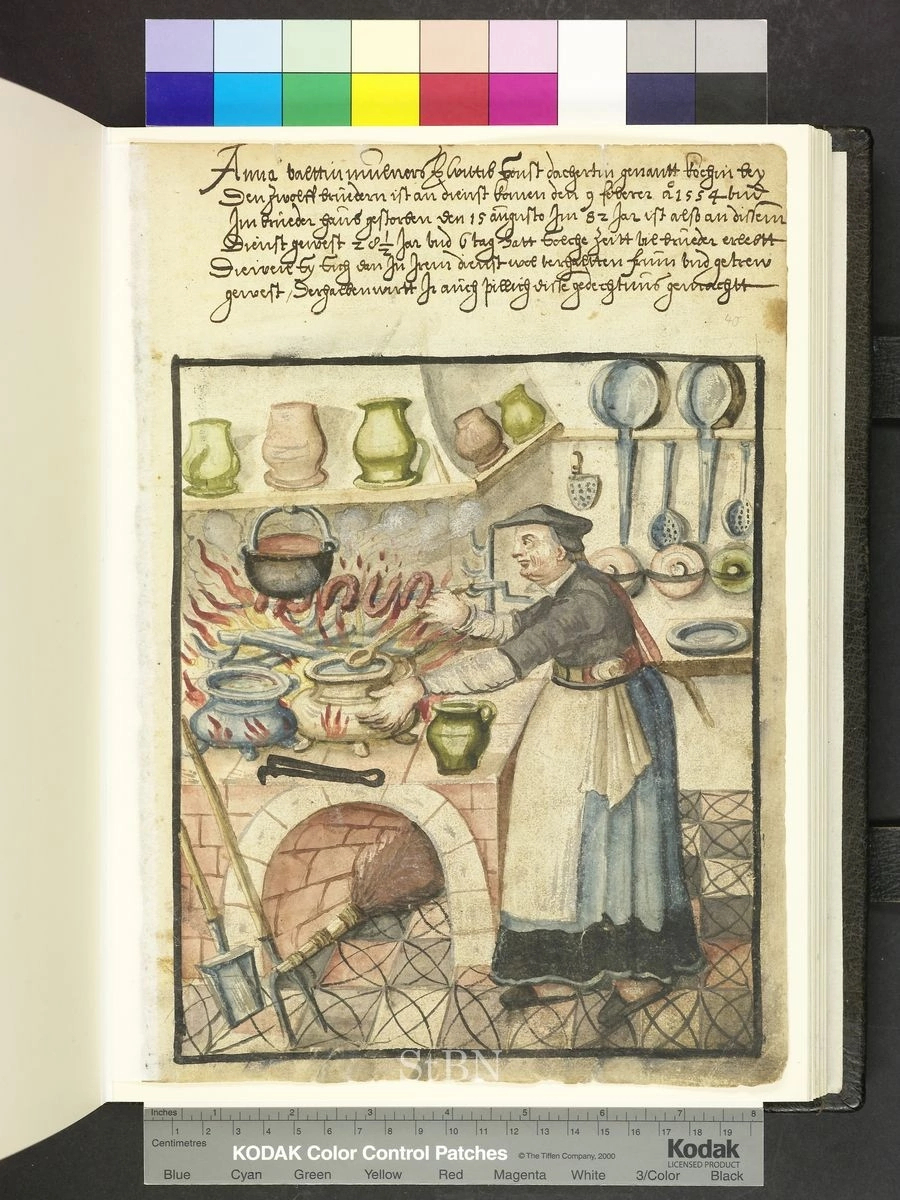 Anna valttin müllners wittib sonst dachertin genantt kochin bey
Den zwolff brüedern ist an dienst komen den 9 feberer a 1554 vnd
Im brüeder haus gestorben den 15 augusto Im 82 Jar ist also an dissem
Dienst gewest 28½ Jar vnd 6 tag hatt solche zeitt vil brüeder erlebtt
Dieweil sy sich dan In Irem dienst wol verhaltten frum vnd getrew
gewest, Derhalben wirtt Ir auch pillich disse gedechtnus gemachtt
40
StBN
Inches 1 2 3 4 5 6 7 8
Centimetres 1 2 3 4 5 6 7 8 9 10 11 12 13 14 15 16 17 18 19
KODAK Color Control Patches © The Tiffen Company, 2000 Kodak
LICENSED PRODUCT
Blue Cyan Green Yellow Red Magenta White 3/Color Black